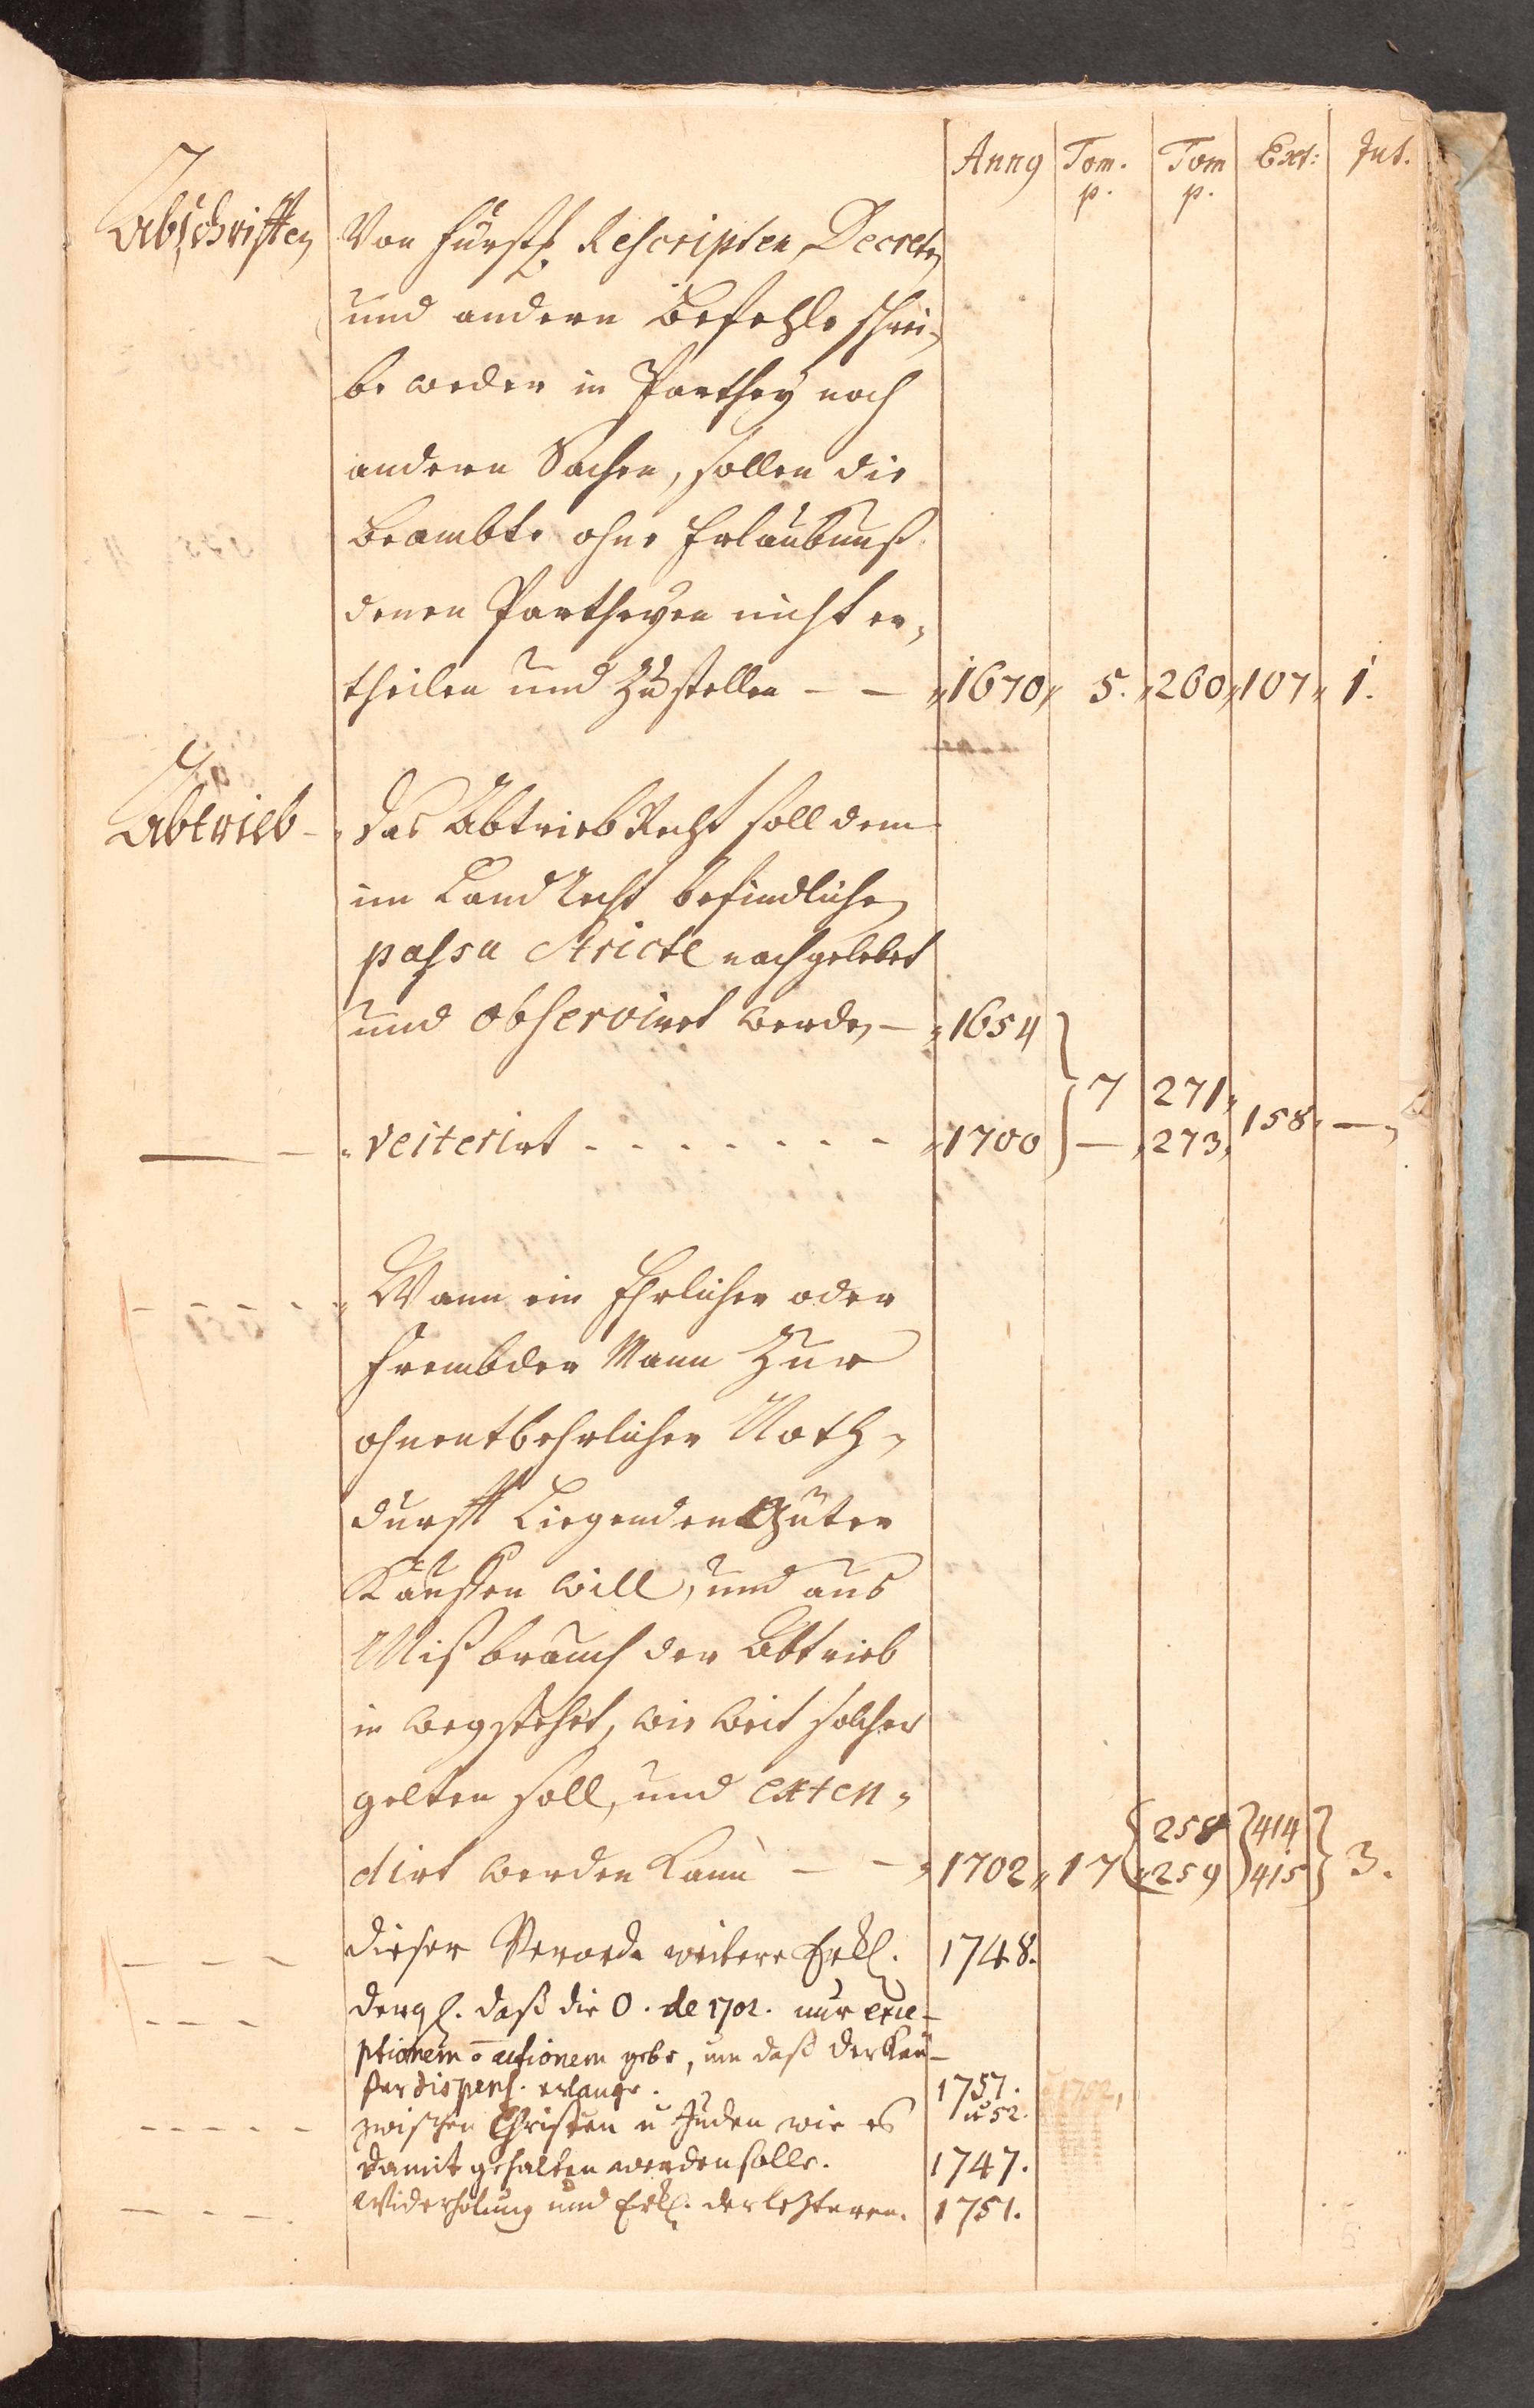 Anno Tom. Tom Ext: Jus.
p. p.
Abschrifften Von Fürstl. Rescripten, Decreten
und andern Befehls schrei,
be weder in Parthey noch
andern Sachen, sollen die
Beambte ohne Erlaubnuß
denen Partheyen nicht er,
theilen und Zustellen — — 1670 5. 260 107 1.
Abtrieb - das Abtrieb Recht soll dem
im Land Recht befindlichen
passu stricte nachgelebet
und observiret werden — 1654
7 271
— reiterirt - - - - - - - 1700 — 273 158. —
Wann ein Ehrlicher oder
frembder Mann Zur
ohnentbehrlicher Noth,
durfft Liegenden Güter
Kauffen will, und aus
Mißbrauch der Abtrieb
in weg stehet, wie weit solcher
gelten soll, und exten,
258 414
dirt werden kann — — 1702 17 259 415 3.
— — — dieser Verordn weitere Erkl. 1748.
- - - dergl. daß die O. de 1702. nur exce-
ptionem o actionem gebe, um daß der Käu-
fer dispens. erlange. 1751. 1752,
- - - - - zwischen Christen u Juden wie es u 52.
damit gehalten werden solle. 1747.
- - - - Widerholung und Erkl. der lezteren. 1751.